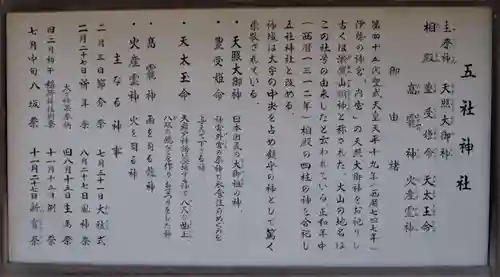 五社神社
主祭神 天照大御神
相殿 豊受姫命 天太玉命
高靇神 火産霊神
御由緒
第四十五代聖武天皇天平十九年(西暦七四七年)
伊勢の神宮「内宮」の天照大御神をお祀りし
古くは 山 神と称された、大山の地名は
この社号の由来したと云われている正和年中
(西暦一三一二年)相殿の四柱の神を合祀し
五社神社と改める
神域は大字の中央を占め鎮守の神として篤く
崇敬されている。
・天照大御神 日本国民の大御祖の神
・豊受姫命 神宮外宮の祭神で衣食住のめぐみを
与えて下さる神
・天太玉命
・高靇神 雨を司る龍神
・火産霊神 火を司る神
主なる神事
二月三日節分祭 七月三十一日大社式
二月二十七日祈年祭 八月二十七日風神祭
四月十五日生馬祭
四二月初午 稲荷社初午祭 十一月十五日 祭
七月中旬八坂祭 十一月二十七日新嘗祭